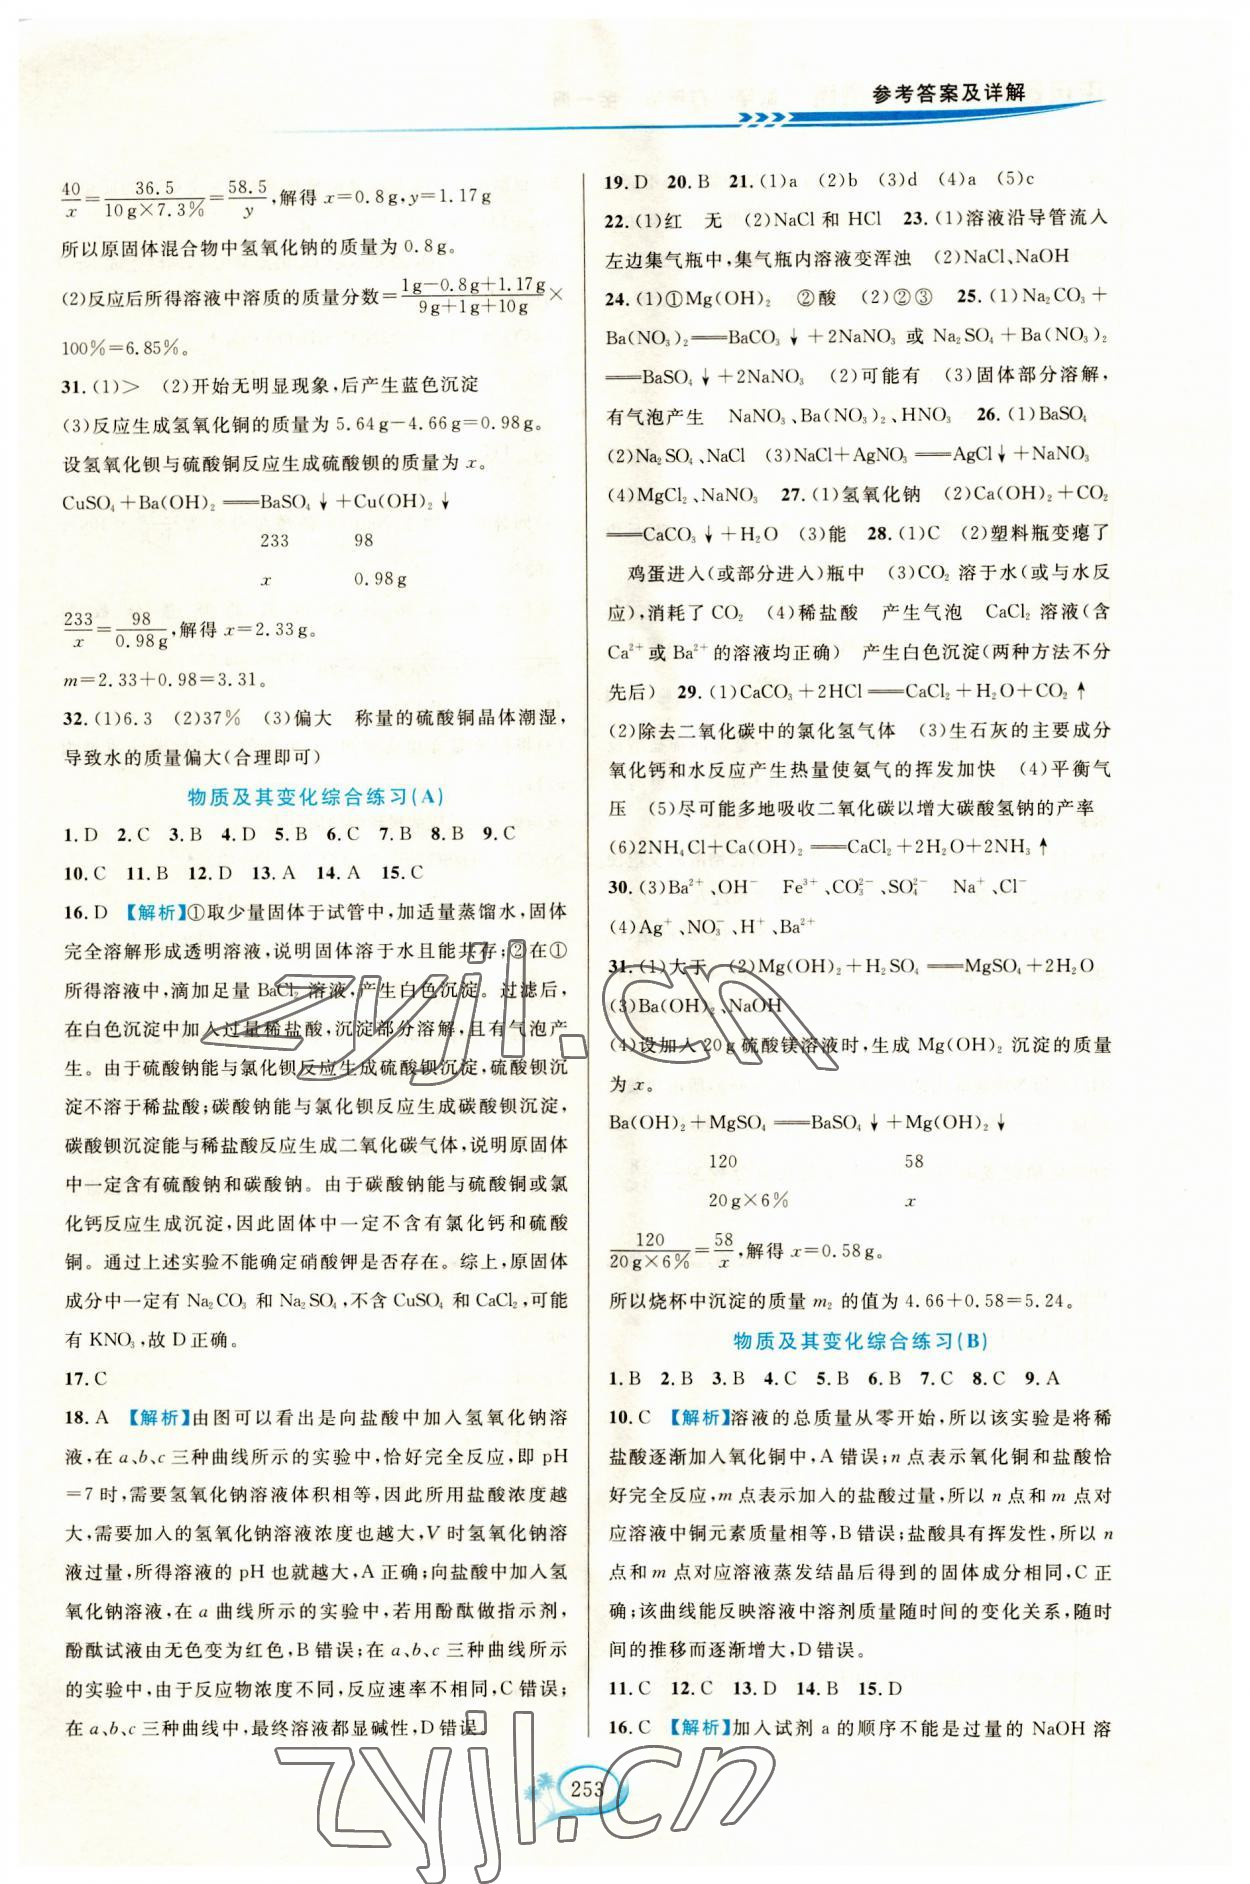 参考答案及详解
40/x=36.5/(10g×7.3%)=58.5/y,解得 x=0.8g,y=1.17g
所以原固体混合物中氢氧化钠的质量为 0.8g。
(2)反应后所得溶液中溶质的质量分数=(1g-0.8g+1.17g)/(9g+1g+10g)×
100%=6.85%。
31.(1)> (2)开始无明显现象,后产生蓝色沉淀
(3)反应生成氢氧化铜的质量为 5.64g-4.66g=0.98g。
设氢氧化钡与硫酸铜反应生成硫酸钡的质量为 x。
CuSO₄+Ba(OH)₂══BaSO₄↓+Cu(OH)₂↓
233 98
x 0.98g
233/x=98/0.98g,解得 x=2.33g。
m=2.33+0.98=3.31。
32.(1)6.3 (2)37% (3)偏大 称量的硫酸铜晶体潮湿,
导致水的质量偏大(合理即可)
物质及其变化综合练习(A)
1.D 2.C 3.B 4.D 5.B 6.C 7.B 8.B 9.C
10.C 11.B 12.D 13.A 14.A 15.C
16.D 【解析】①取少量固体于试管中,加适量蒸馏水,固体
完全溶解形成透明溶液,说明固体溶于水且能共存;②在①
所得溶液中,滴加足量 BaCl₂ 溶液,产生白色沉淀。过滤后,
在白色沉淀中加入过量稀盐酸,沉淀部分溶解,且有气泡产
生。由于硫酸钠能与氯化钡反应生成硫酸钡沉淀,硫酸钡沉
淀不溶于稀盐酸;碳酸钠能与氯化钡反应生成碳酸钡沉淀,
碳酸钡沉淀能与稀盐酸反应生成二氧化碳气体,说明原固体
中一定含有硫酸钠和碳酸钠。由于碳酸钠能与硫酸铜或氯
化钙反应生成沉淀,因此固体中一定不含有氯化钙和硫酸
铜。通过上述实验不能确定硝酸钾是否存在。综上,原固体
成分中一定有 Na₂CO₃ 和 Na₂SO₄,不含 CuSO₄ 和 CaCl₂,可能
有 KNO₃,故 D 正确。
17.C
18.A 【解析】由图可以看出是向盐酸中加入氢氧化钠溶
液,在 a、b、c 三种曲线所示的实验中,恰好完全反应,即 pH
=7 时,需要氢氧化钠溶液体积相等,因此所用盐酸浓度越
大,需要加入的氢氧化钠溶液浓度也越大,V 时氢氧化钠溶
液过量,所得溶液的 pH 也就越大,A 正确;向盐酸中加入氢
氧化钠溶液,在 a 曲线所示的实验中,若用酚酞做指示剂,
酚酞试液由无色变为红色,B 错误;在 a、b、c 三种曲线所示
的实验中,由于反应物浓度不同,反应速率不相同,C 错误;
在 a、b、c 三种曲线中,最终溶液都显碱性,D 错误。
19.D 20.B 21.(1)a (2)b (3)d (4)a (5)c
22.(1)红 无 (2)NaCl 和 HCl 23.(1)溶液沿导管流入
左边集气瓶中,集气瓶内溶液变浑浊 (2)NaCl、NaOH
24.(1)①Mg(OH)₂ ②酸 (2)②③ 25.(1)Na₂CO₃+
Ba(NO₃)₂══BaCO₃↓+2NaNO₃ 或 Na₂SO₄+Ba(NO₃)₂
══BaSO₄↓+2NaNO₃ (2)可能有 (3)固体部分溶解,
有气泡产生 NaNO₃、Ba(NO₃)₂、HNO₃ 26.(1)BaSO₄
(2)Na₂SO₄、NaCl (3)NaCl+AgNO₃══AgCl↓+NaNO₃
(4)MgCl₂、NaNO₃ 27.(1)氢氧化钠 (2)Ca(OH)₂+CO₂
══CaCO₃↓+H₂O (3)能 28.(1)C (2)塑料瓶变瘪了
鸡蛋进入(或部分进入)瓶中 (3)CO₂ 溶于水(或与水反
应),消耗了 CO₂ (4)稀盐酸 产生气泡 CaCl₂ 溶液(含
Ca²⁺或 Ba²⁺的溶液均正确) 产生白色沉淀(两种方法不分
先后) 29.(1)CaCO₃+2HCl══CaCl₂+H₂O+CO₂↑
(2)除去二氧化碳中的氯化氢气体 (3)生石灰的主要成分
氧化钙和水反应产生热量使氨气的挥发加快 (4)平衡气
压 (5)尽可能多地吸收二氧化碳以增大碳酸氢钠的产率
(6)2NH₄Cl+Ca(OH)₂══CaCl₂+2H₂O+2NH₃↑
30.(3)Ba²⁺、OH⁻ Fe³⁺、CO₃²⁻、SO₄²⁻ Na⁺、Cl⁻
(4)Ag⁺、NO₃⁻、H⁺、Ba²⁺
31.(1)大于 (2)Mg(OH)₂+H₂SO₄══MgSO₄+2H₂O
(3)Ba(OH)₂、NaOH
(4)设加入 20g 硫酸镁溶液时,生成 Mg(OH)₂ 沉淀的质量
为 x。
Ba(OH)₂+MgSO₄══BaSO₄↓+Mg(OH)₂↓
120 58
20g×6% x
120/(20g×6%)=58/x,解得 x=0.58g。
所以烧杯中沉淀的质量 m₂ 的值为 4.66+0.58=5.24。
物质及其变化综合练习(B)
1.B 2.B 3.B 4.C 5.B 6.B 7.C 8.C 9.A
10.C 【解析】溶液的总质量从零开始,所以该实验是将稀
盐酸逐渐加入氧化铜中,A 错误;n 点表示氧化铜和盐酸恰
好完全反应,m 点表示加入的盐酸过量,所以 n 点和 m 点对
应溶液中铜元素质量相等,B 错误;盐酸具有挥发性,所以 n
点和 m 点对应溶液蒸发结晶后得到的固体成分相同,C 正
确;该曲线能反映溶液中溶剂质量随时间的变化关系,随时
间的推移而逐渐增大,D 错误。
11.C 12.C 13.D 14.B 15.D
16.C 【解析】加入试剂 a 的顺序不能是过量的 NaOH 溶
253
zyjl.cn
zyjl.cn